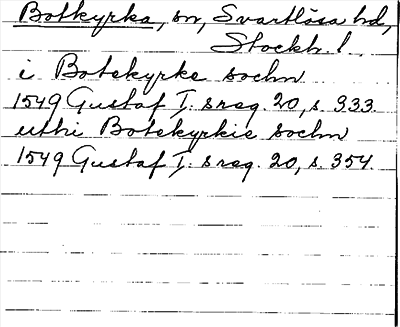 Botkyrka, sn, Svartlösa hd,
Stockh. l.
i Botekyrke sochn
1549 Gustaf I. s reg. 20, s. 333.
uthi Botekyrkie sochn
1549 Gustaf I. s reg. 20, s. 354.